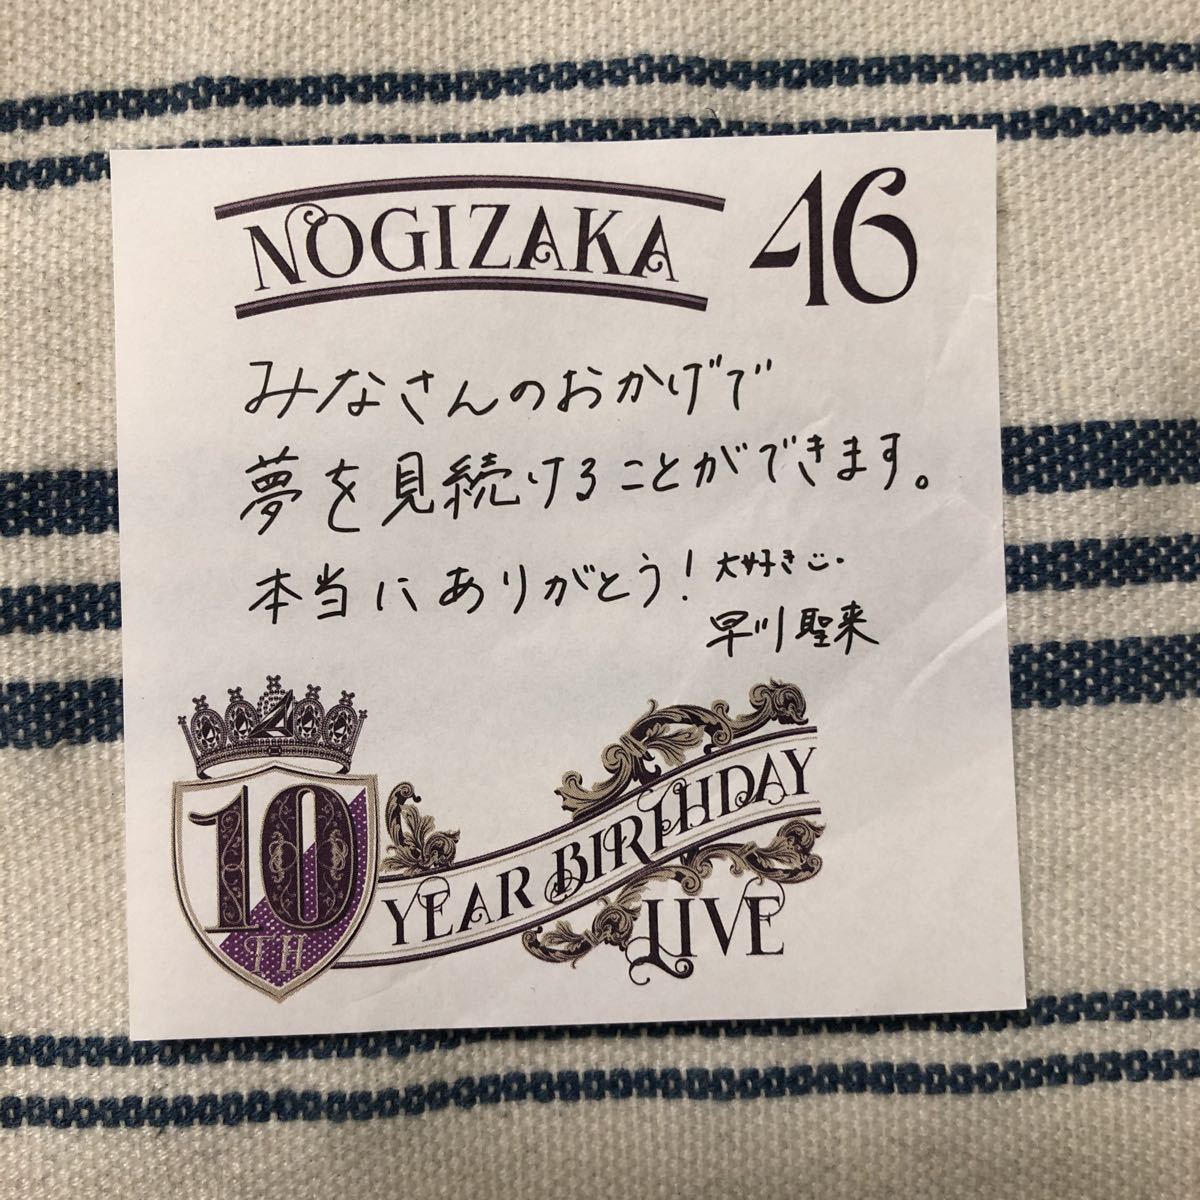 NOGIZAKA 46
みなさんのおかげで
夢を見続けることができます。
本当にありがとう!大好き
早川聖来
10TH
YEAR BIRTHDAY
LIVE